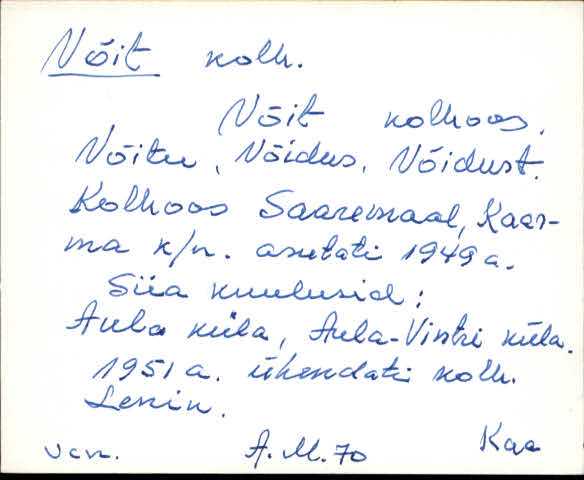 Võit kolh.
Võit kolhoos,
Võitu, Võidus, Võidust.
Kolhoos Saaremaal, Kaar-
ma k/n. asutati 1949 a.
Siia kuulusid:
Aula küla, Aula-Vintri küla.
1951 a. ühendati kolh.
Lenin.
ven. A. M. 70 Kaa